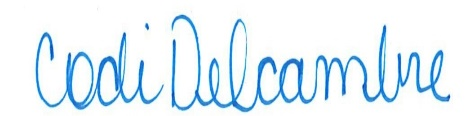 Codi Delcambre